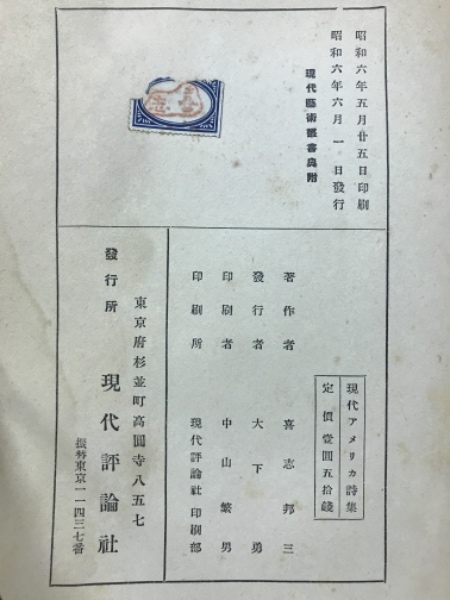 昭和六年五月廿五日印刷
昭和六年六月一日發行
現代藝術叢書奥附
現代アメリカ詩集
定價壹圓五拾錢
著作者 喜志邦三
發行者 大下勇
印刷者 中山繁男
印刷所 現代評論社印刷部
東京府杉並町高圓寺八五七
發行所 現代評論社
振替東京一一四三七番